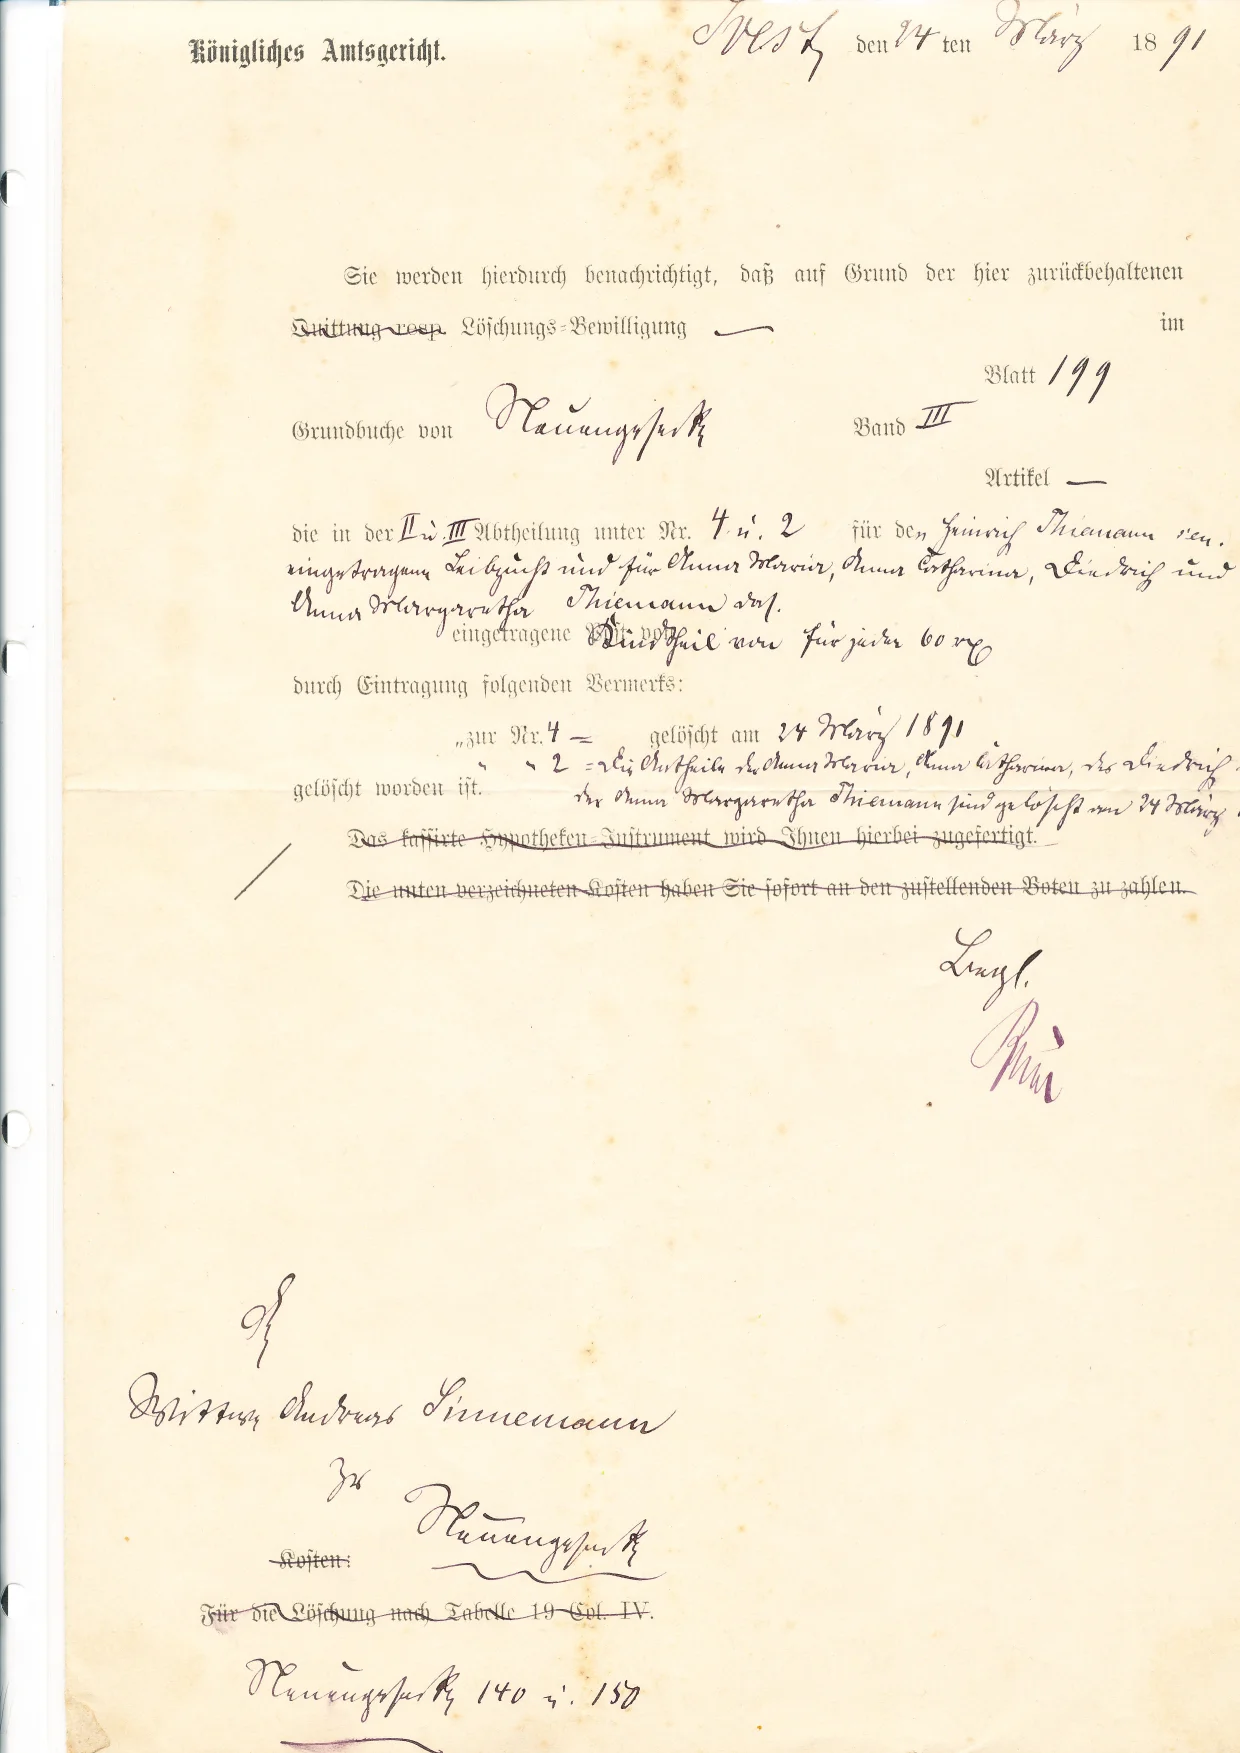 Königliches Amtsgericht.
Soest, den 24 ten März 1891
Sie werden hierdurch benachrichtigt, daß auf Grund der hier zurückbehaltenen
Quittung resp. Löschungs-Bewilligung — im
Blatt 199
Grundbuche von Neuengeseke Band III
Artikel —
die in der II u. III Abtheilung unter Nr. 4 u. 2 für den Heinrich Thiemann sen.
eingetragene Leibzucht und für Anna Maria, Anna Catharina, Diedrich und
Anna Margaretha Thiemann das.
eingetragene Post von Kindtheil von für jeden 60 rx
durch Eintragung folgenden Vermerks:
„zur Nr. 4 = gelöscht am 24 März 1891
" " 2 = Die Antheile der Anna Maria, Anna Catharina, des Diedrich,
gelöscht worden ist. der Anna Margaretha Thiemann sind gelöscht am 24 März
Das kassirte Hypotheken-Instrument wird Ihnen hierbei zugefertigt.
Die unten verzeichneten Kosten haben Sie sofort an den zustellenden Boten zu zahlen.
Begl.
Wittwe Andreas Linnemann
zu
Neuengeseke
Kosten:
Für die Löschung nach Tabelle 19 Col. IV.
Neuengeseke 140 u. 150